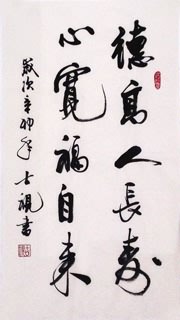 德高人長壽
心寬福自來
歲次辛卯年士視書